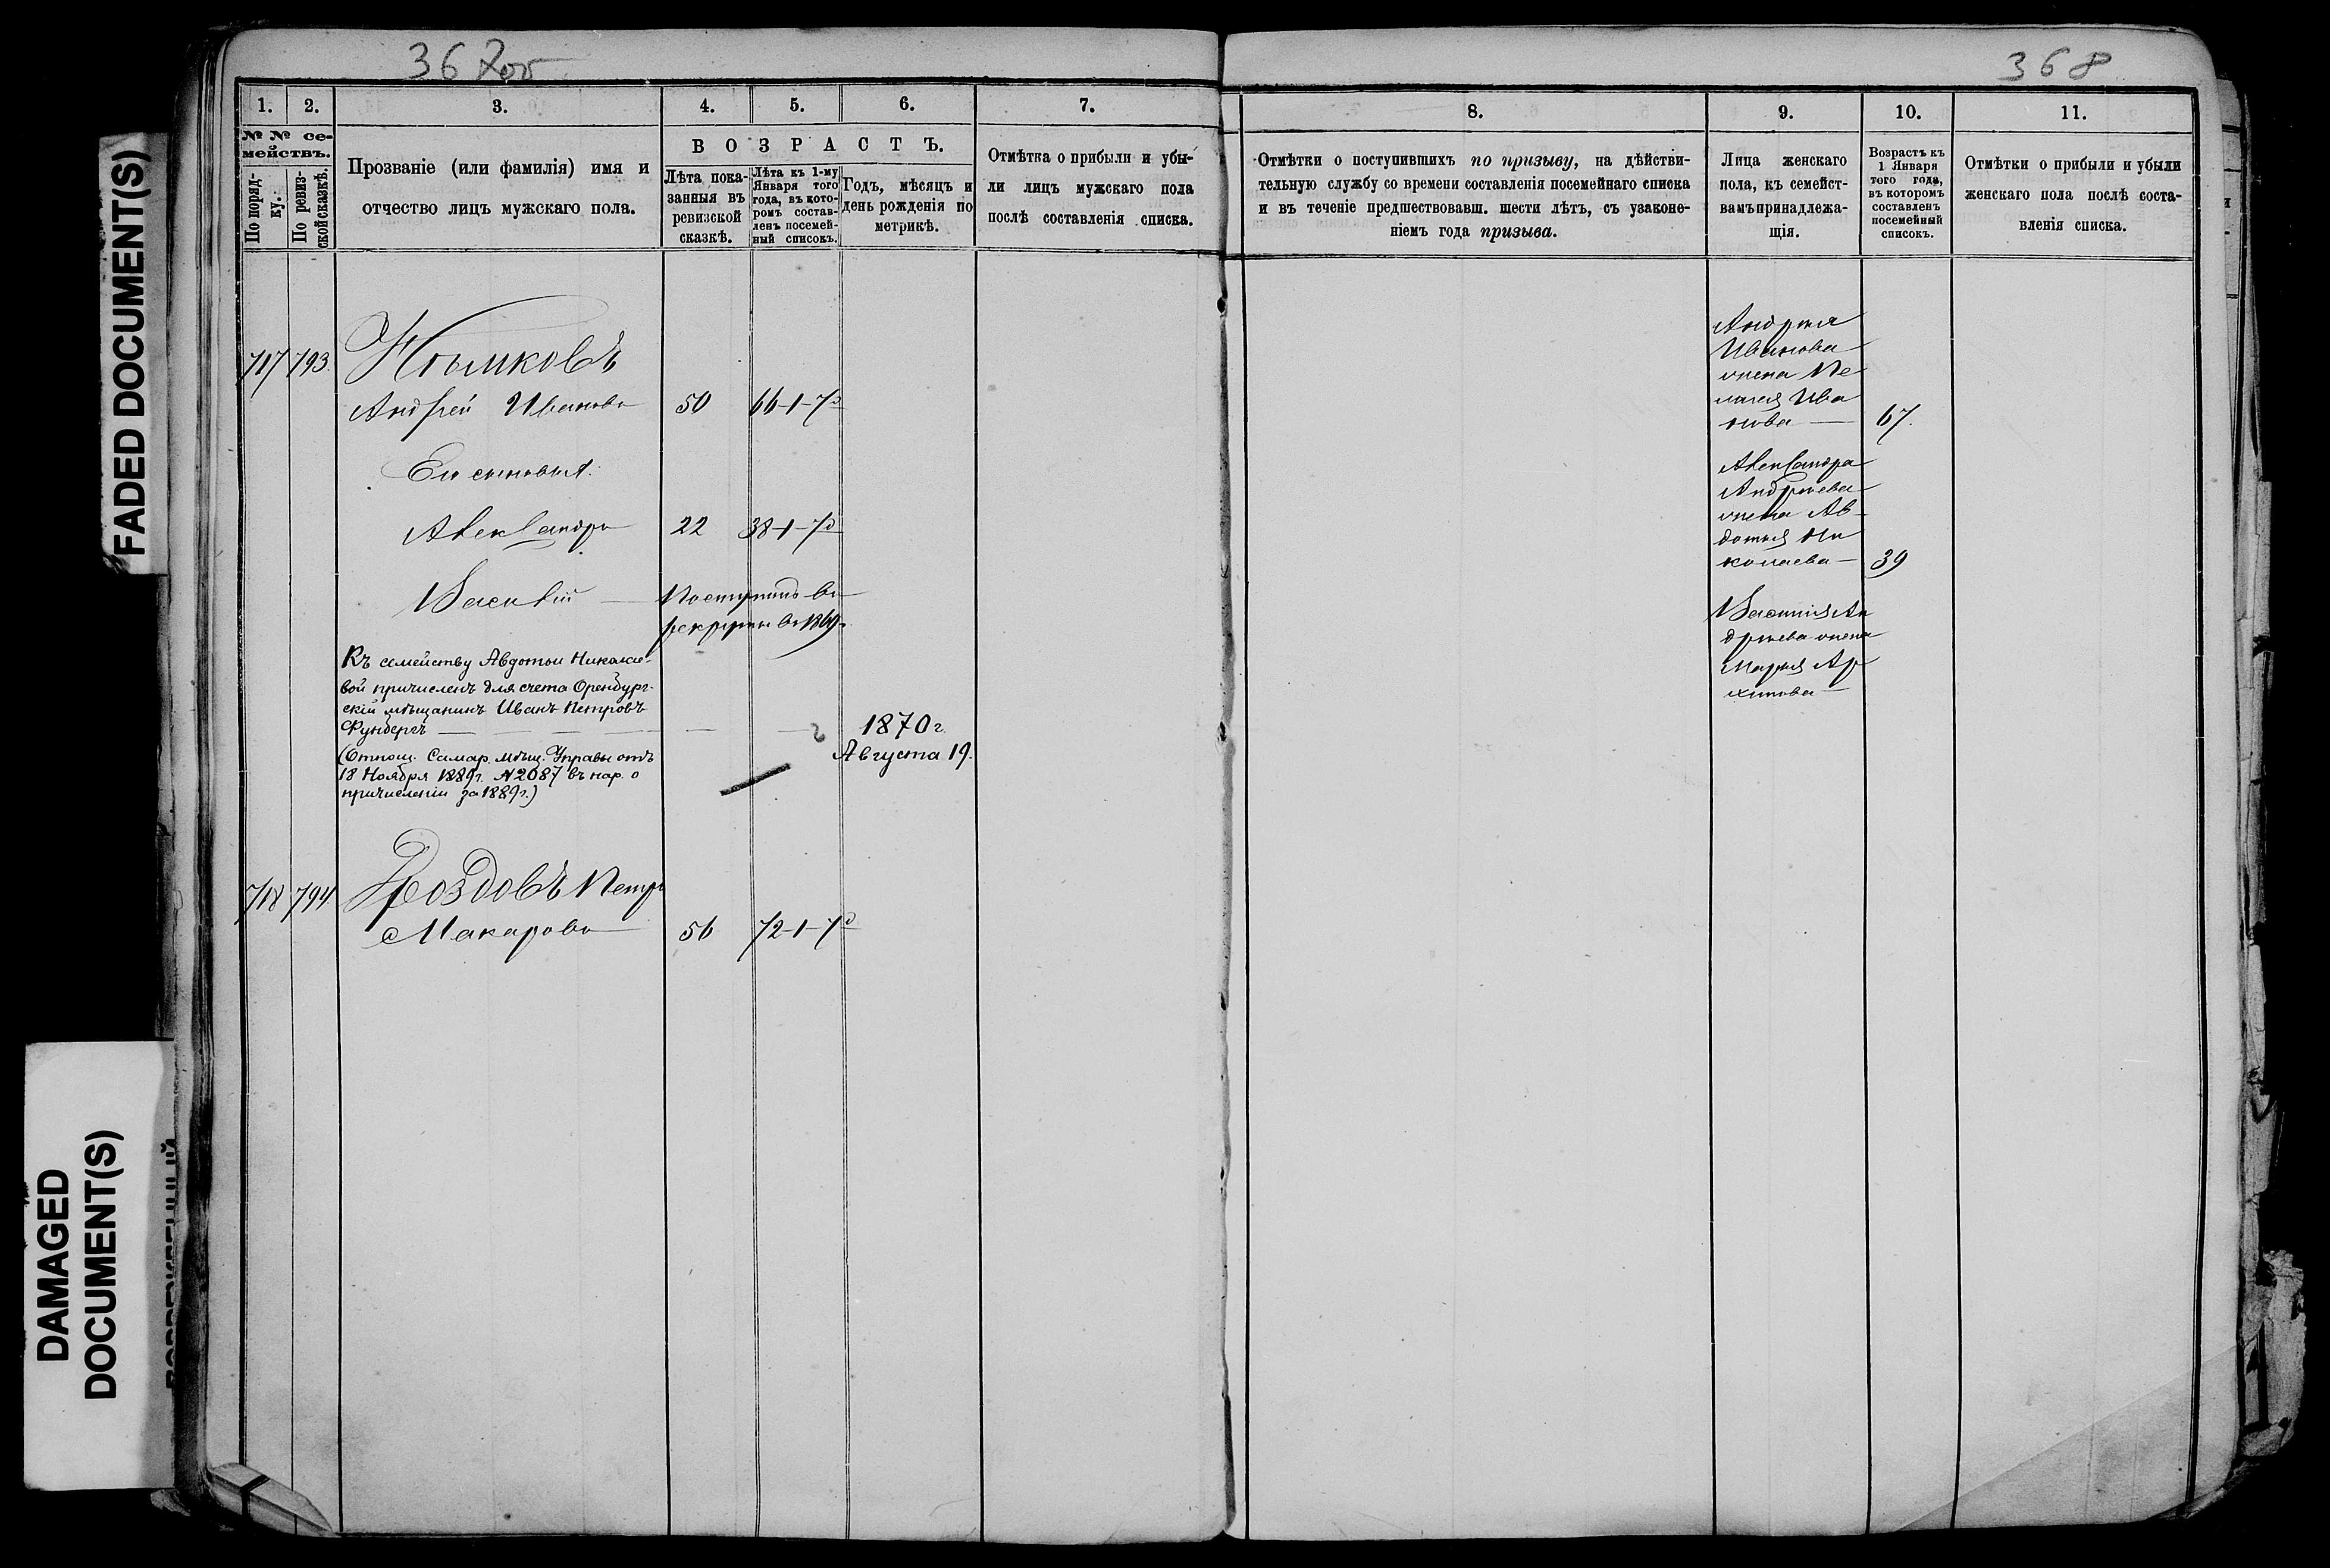 367об
368
FADED DOCUMENT(S)
DAMAGED
DOCUMENT(S)
1.
2.
3.
4.
5.
6.
7.
№ № се-
мействъ.
По поряд-
ку.
По ревиз-
ской сказкѣ.
Прозваніе (или фамилія) имя и
отчество лицъ мужскаго пола.
ВОЗРАСТЪ.
Лѣта пока-
занныя въ
ревизской
сказкѣ.
Лѣта къ 1-му
Января того
года, въ кото-
ромъ состав-
ленъ посемей-
ный списокъ.
Годъ, мѣсяцъ и
день рожденія по
метрикѣ.
Отмѣтка о прибыли и убы-
ли лицъ мужскаго пола
послѣ составленія списка.
717 793.
Андрей Ивановъ 50 66-1-7д
Его сыновья.
Александръ 22 38-1-7д
Василій — Поступилъ въ
рекруты въ
Къ семейству Авдотьи Николае-
вой причисленъ для счета Оренбург-
скій мѣщанинъ Иванъ Петровъ
Фундергъ — — — — — — 1870 г.
Августа 19.
(Отнош. Самар. мѣщ. Управы отъ
18 Ноября 1889 г. № 2087 въ нар. о
причисленіи за 1889 г.)
718 794 Дроздовъ Петръ
Макаровъ 56 72-1-7д
8.
9.
10.
11.
Отмѣтки о поступившихъ по призыву, на дѣйстви-
тельную службу со времени составленія посемейнаго списка
и въ теченіе предшествовавш. шести лѣтъ, съ узаконе-
ніемъ года призыва.
Лица женскаго
пола, къ семейст-
вамъ принадлежа-
щія.
Возрастъ къ
1 Января
того года,
въ которомъ
составленъ
посемейный
списокъ.
Отмѣтки о прибыли и убыли
женскаго пола послѣ соста-
вленія списка.
Андрея
Иванова
жена Пе-
лагея Ива
нова — 67.
Александра
Андреева
жена Ав-
дотья Ни
колаева — 39
Василія Ан
дреева жена
Марья Ар
хипова —